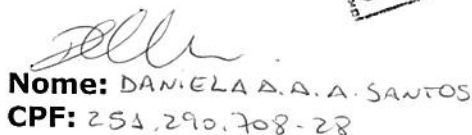 Nome: DANIELA A. A. A. SANTOS
CPF: 251.290.708-28